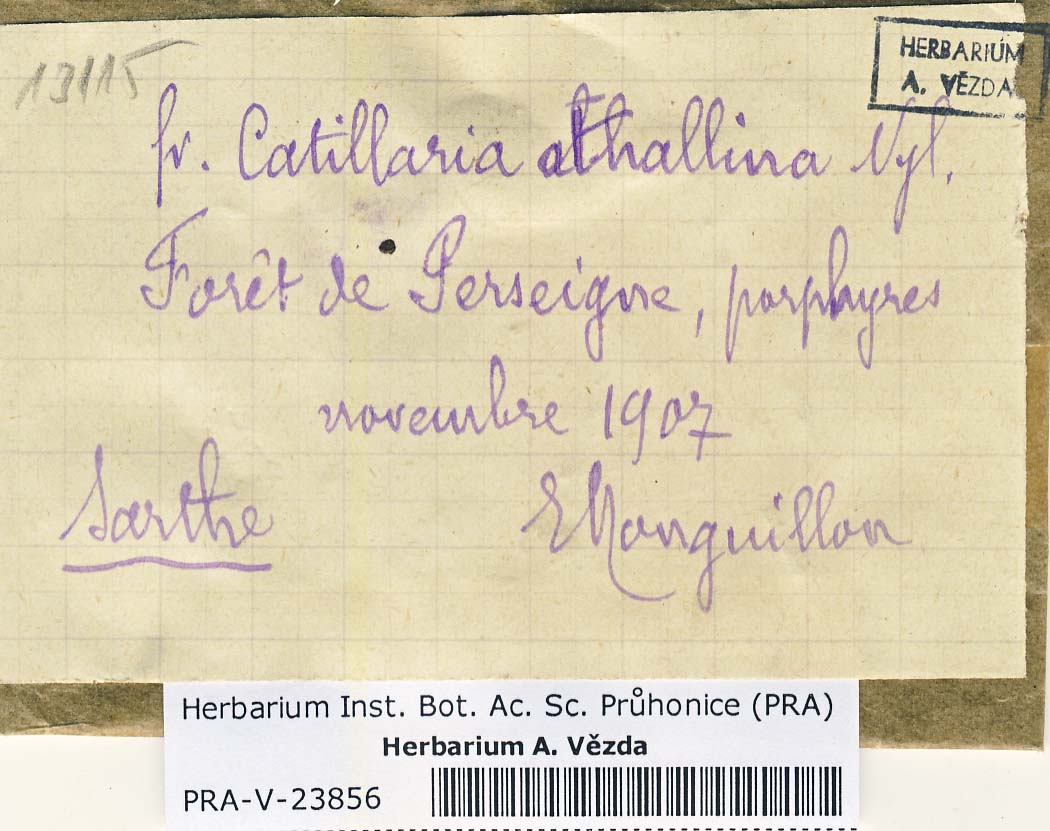 13/15
HERBARIUM
A. VĚZDA
fr. Catillaria athallina Nyl.
Forêt de Perseigne, porphyres
novembre 1907
Sarthe
E Monguillon
Herbarium Inst. Bot. Ac. Sc. Průhonice (PRA)
Herbarium A. Vězda
PRA-V-23856